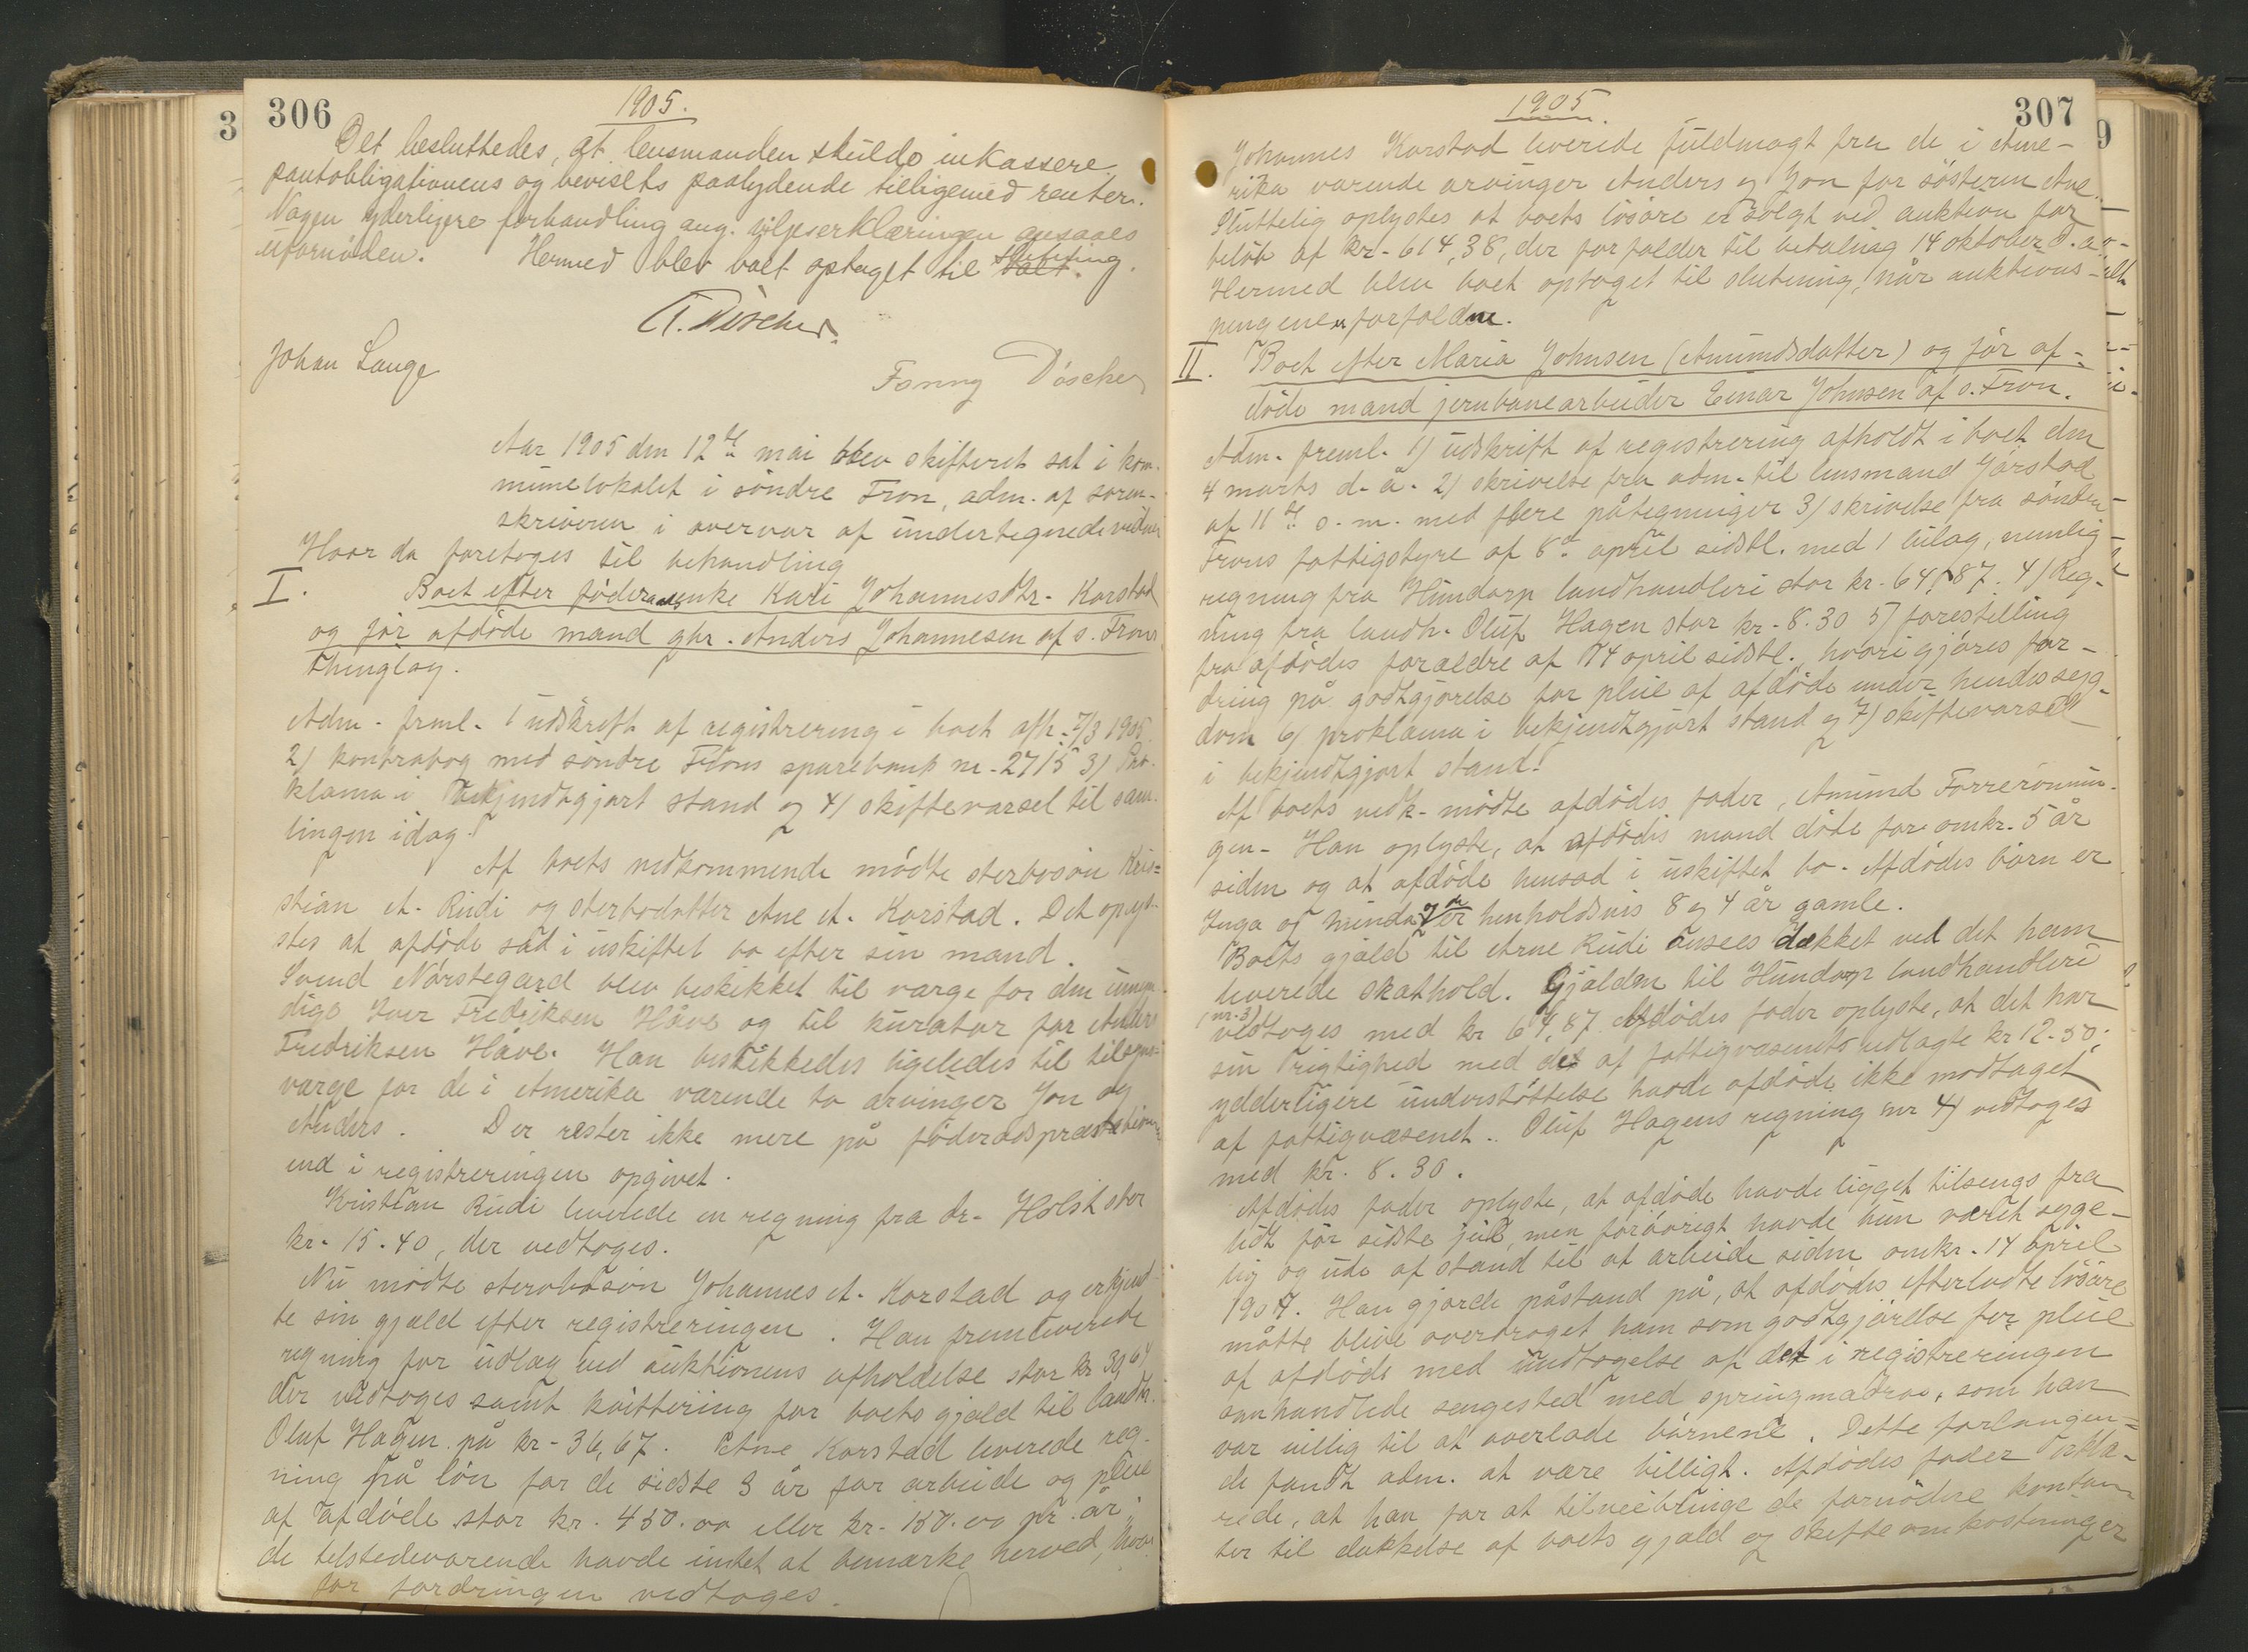 306
1905.
Det besluttedes, at lensmanden skulde inkassere
pantobligationens og bevisets paalydende tilligemed renter.
Nogen yderligere forhandling ang. viljeserklæringen ansaaes
ufornöden. Hermed blev boet optaget til slutning.
Johan Lange
Fanny Döscher
Aar 1905 den 12te mai blev skifteret sat i kom-
munelokalet i söndre Fron, adm. af soren-
skriveren i overvær af undertegnede vidner
Hvor da foretoges til behandling
I. Boet efter föderaadsenke Kari Johannesdtr. Korstad
og för afdöde mand gbr. Anders Johannesen af s. Frons
thinglag.
Adm. freml. 1 udskrift af registrering i boet afh. 7/3 1905.
2) kontrabog med söndre Frons sparebank nr. 2715 3) Pro-
klama i bekjendtgjort stand og 4) skiftevarsel til sam-
lingen idag.
Af boets vedkommende mödte sterbosön Kris-
stian A. Rudi og sterbodatter Ane A. Korstad. Det oplys-
stes at afdöde sad i uskiftet bo efter sin mand.
Svend Nörstegard blev beskikket til værge for den umyn-
dige Iver Fredriksen Håve og til kurator for Anders
Fredriksen Håve. Han beskikkedes ligeledes til tilsyns-
værge for de i Amerika værende to arvinger Jon og
Anders. Der rester ikke mere på föderådspræstationer
end i registreringen opgivet.
Kristian Rudi leverede en regning fra dr. Holst stor
kr. 15.40, der vedtoges.
Nu mödte sterbosön Johannes A. Korstad og erkjend-
te sin gjæld efter registreringen. Han fremleverede
regning for udlæg ved auktionens afholdelse stor kr 30,64
der vedtoges samt kvittering for boets gjæld til landh.
Oluf Hagen på kr. 36,67. Ane Korstad leverede reg-
ning på lön for de sidste 3 år for arbeide og pleie
af afdöde stor kr. 450.00 eller kr. 150.00 pr. år;
de tilstedeværende havde intet at bemærke herved, hvor-
for fordringen vedtoges.
307
1905.
Johannes Korstad leverede fuldmagt fra de i Ame-
rika værende arvinger Anders og Jon for sösteren Ane.
Sluttelig oplystes at boets lösöre er solgt ved auktion for
belöb af kr. 614,38, der forfalder til betaling 14 oktober d. a.
Hermed blev boet optaget til slutning, når auktions-
pengene er forfaldne.
II. Boet efter Maria Johnsen (Amundsdatter) og för af-
döde mand jernbanearbeider Einar Johnsen af s. Fron.
Adm. freml. 1) udskrift af registrering afholdt i boet den
4 marts d. å. 2) skrivelse fra adm. til lensmand Görstad
af 11te s. m. med flere påtegninger 3) skrivelse fra söndre
Frons fattigstyre af 8de april sidstl. med 1 bilag, nemlig
regning fra Hundorp landhandleri stor kr. 64,87. 4) Reg-
ning fra landh. Oluf Hagen stor kr. 8.30 5) forestilling
fra afdödes forældre af 14 april sidstl., hvori gjöres for-
dring på godtgjörelse for pleie af afdöde under hendes syg-
dom 6) proklama i bekjendtgjort stand og 7) skiftevarsel
i bekjendtgjort stand.
Af boets vedk. mödte afdödes fader, Amund
Han oplyste, at afdödes mand döde for omkr. 5 år
siden og at afdöde hensad i uskiftet bo. Afdödes börn er
Inga og Minda og de er henholdsvis 8 og 4 år gamle.
Boets gjæld til Arne Rudi ansees dækket ved det ham
leverede skathold. Gjælden til Hundorp landhandleri
(nr. 3)
vedtoges med kr 64,87. Afdödes fader oplyste, at det har
sin rigtighed med det af fattigvæsenets udlagte kr 12.50;
ydderligere understöttelse havde afdöde ikke modtaget
af fattigvæsenet. Oluf Hagens regning nr 4) vedtoges
med kr. 8.30.
Afdödes fader oplyste, at afdöde havde ligget tilsengs fra
lidt för sidste jul, men forövrigt havde hun været syge-
lig og ude af stand til at arbeide siden omkr. 14 april
1904. Han gjorde påstand på, at afdödes efterladte lösöre
måtte blive overdraget ham som godtgjörelse for pleie
af afdöde med undtagelse af det i registreringen
omhandlede sengested med springmadras, som han
var villig til at overlade börnene. Dette forlangen-
de fandt adm. at være billigt. Afdödes fader erklæ-
rede, at han for at tilveiebringe de fornödne kontan-
ter til dækkelse af boets gjæld og skifteomkostninger